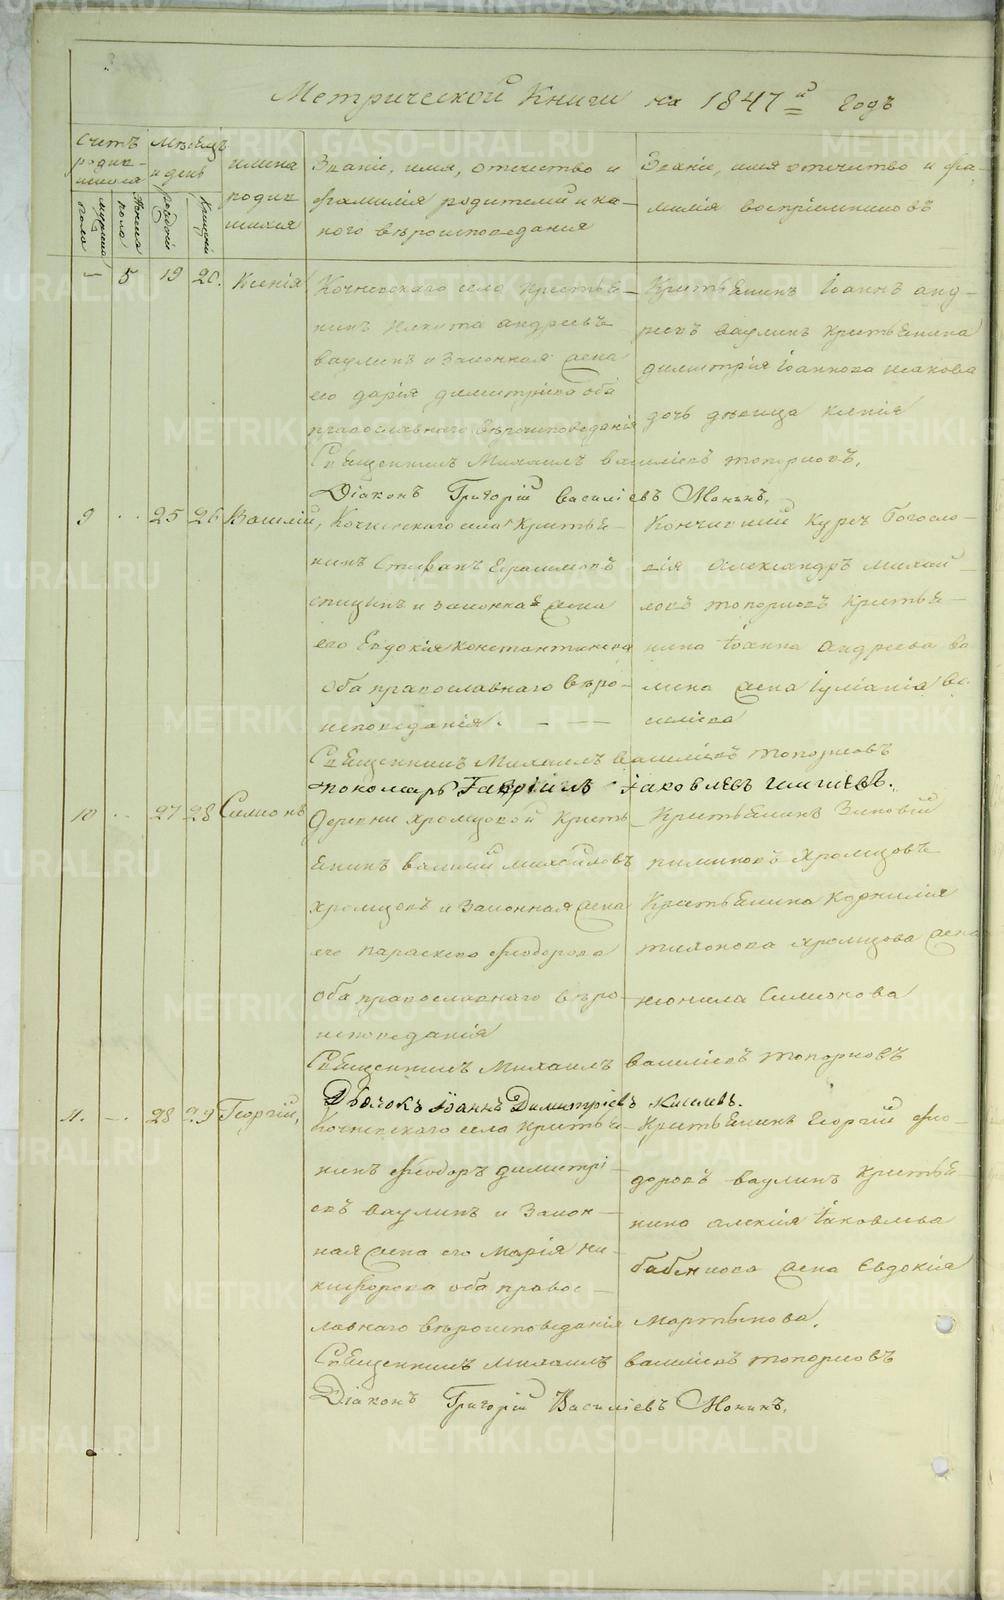 Метрической Книги на 1847й годъ
Счетъ родившихся
Мѣсяцъ и день
имена родившихся
Званіе, имя, отечество и фамилія родителей и какого вѣроисповеданія
Званіе, имя отечитво и фамилія воспріемниковъ
мужеска пола
Женска пола
рожденія
Крещенія
— 5 19 20. Ксенія
Кочневскаго села Крестья-
нинъ Никита андреевъ
ваулинъ и Законная жена
его дарія димитріева оба
православнаго вѣроисповеданія
Крестьянинъ Іоаннъ анд-
реевъ ваулинъ крестьянина
димитрія Іоаннова исакова
дочь девица ксенія
Священникъ Михаилъ василіевъ топорковъ,
Діаконъ Григорій Василіевъ Монинъ,
9 .. 25 26 Василій,
Кочневскаго села Крестья-
нинъ Стефанъ Герасимовъ
спицынъ и законная жена
его Евдокія константинова
оба православнаго вѣро-
исповеданія. — — —
Кончившій Курсъ Богосло-
вія Александръ михай-
ловъ топорковъ крестья-
нина Іоанна андреева ва
лина жена Іуліанія ва-
силіева
Священникъ Михаилъ василіевъ топорковъ
пономарь Гавріилъ Іаковлевъ
10 .. 27 28 Симионъ
Деревни хромцовой Кресть
янинъ василій михаиловъ
хромцовъ и Законная жена
его параскева феодорова
оба православнаго вѣро-
исповеданія
Крестьянинъ Зиновій
пименовъ хромцовъ
Крестьянина Корнилія
тихонова хромцова жена
неонила Симионова
Священникъ Михаилъ василіевъ топорковъ
Дьячокъ Іоаннъ Димитріевъ Киселевъ.
11. —. 28 29 Георгій,
Кочневскаго села Крестья-
нинъ феодоръ димитрі-
евъ ваулинъ и Закон-
ная жена его Марія ни-
кифорова оба правос-
лавнаго вѣроисповеданія
Крестьянинъ Георгій фео-
доровъ ваулинъ крестья-
нина алексія Іаковлева
бабенкова жена Евдокія
Мартынова.
Священникъ михаилъ василіевъ топорковъ
Діаконъ Григорій Василіевъ Монинъ.
METRIKI.GASO-URAL.RU